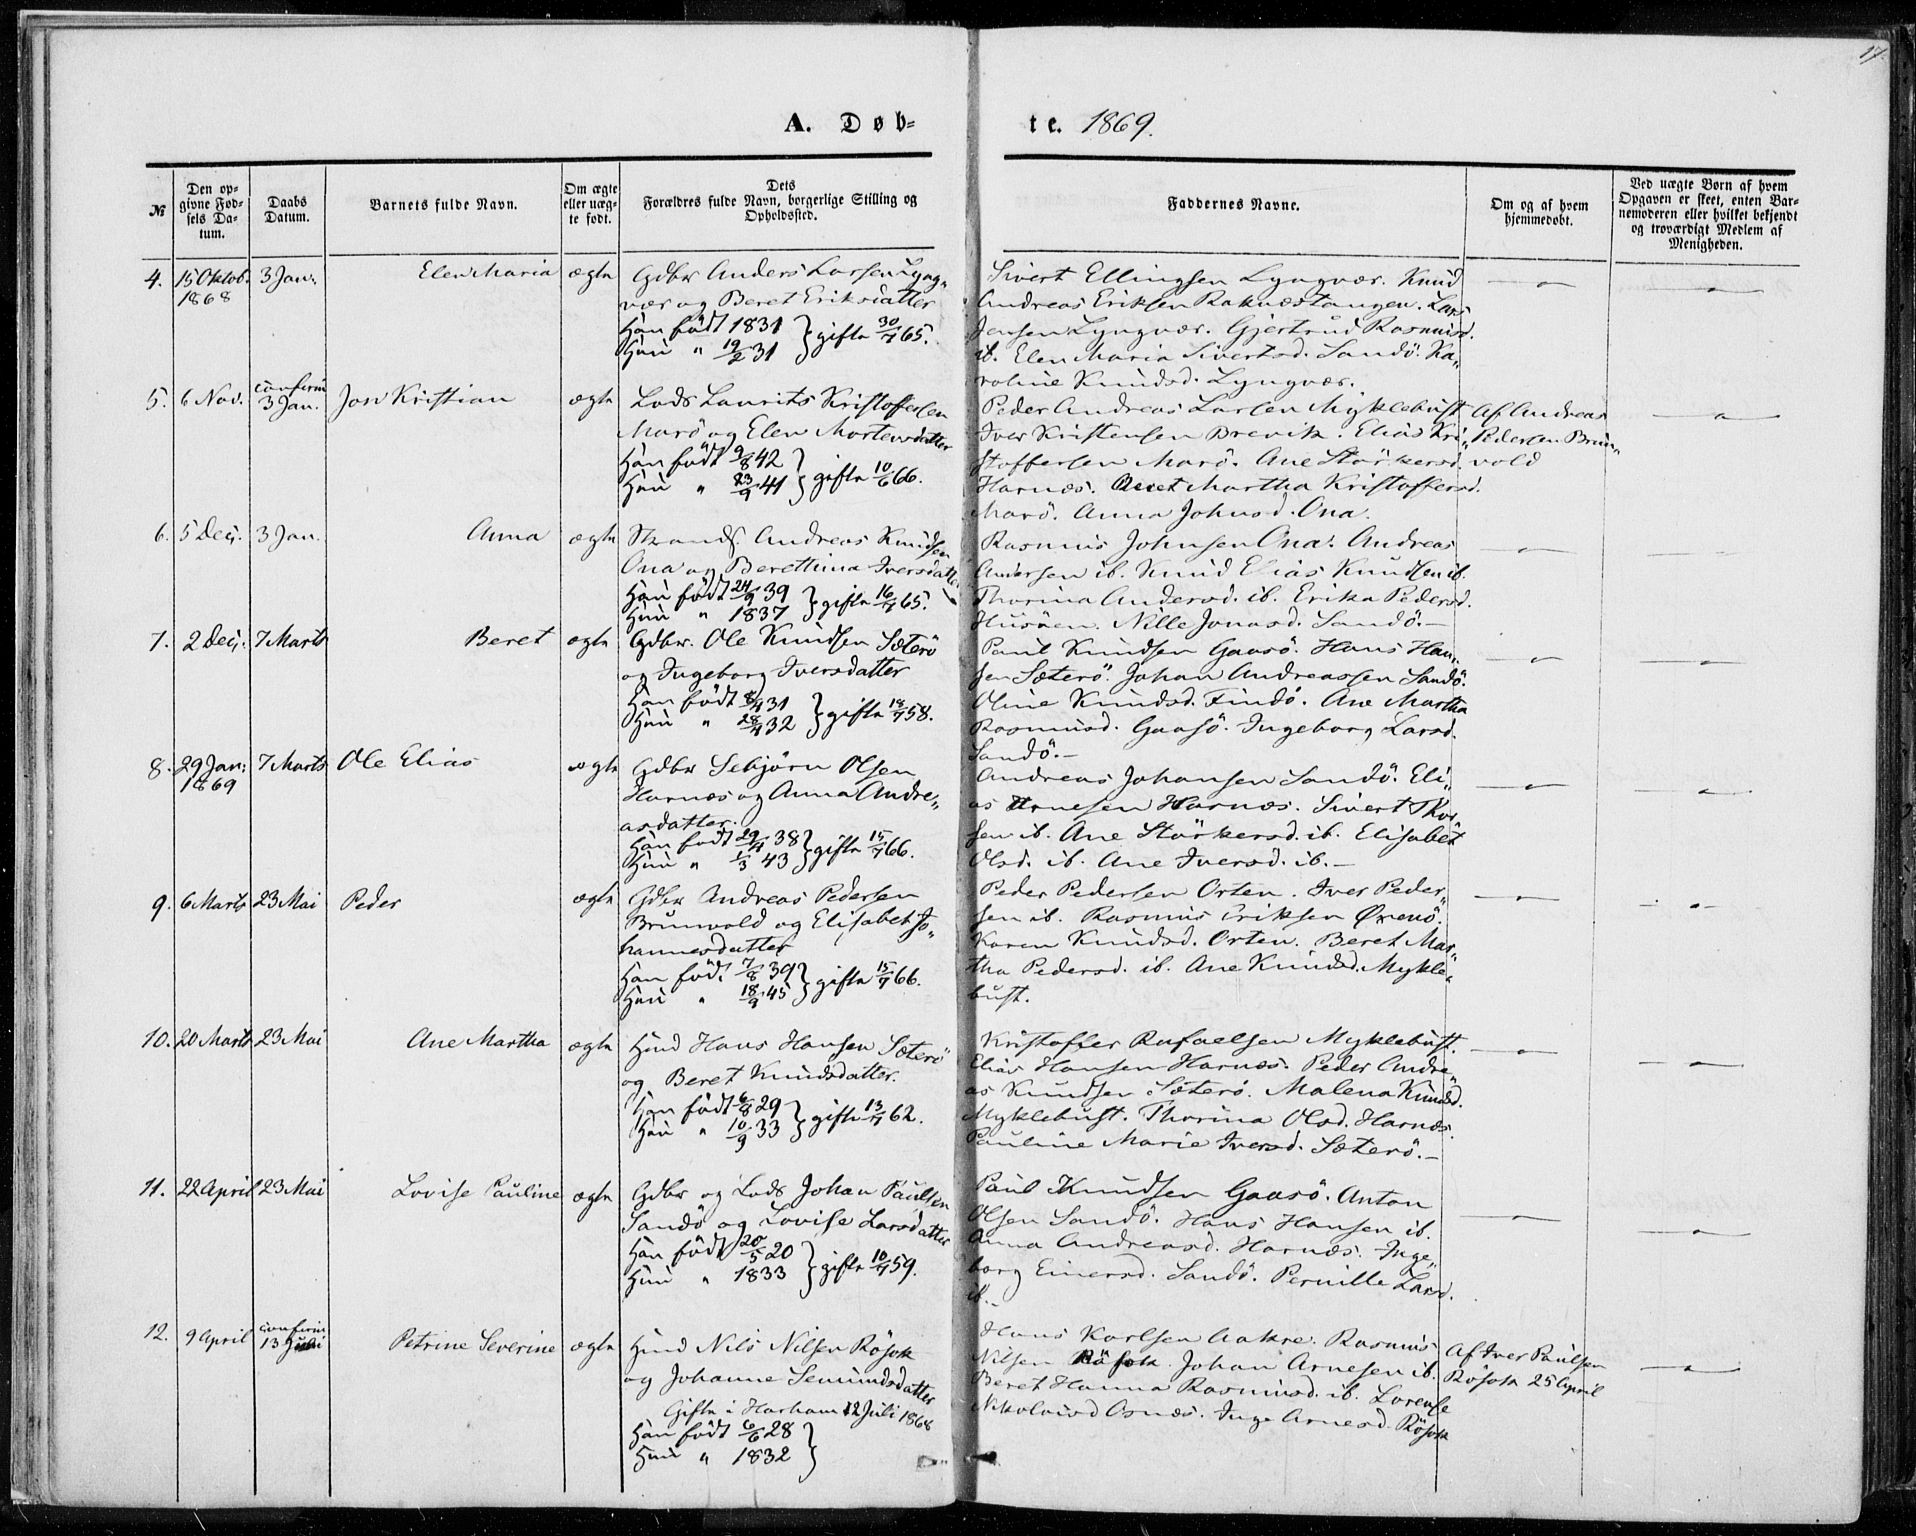 17.
A. Døb-
te. 1869.
№
Den op-
givne Fød-
sels Da-
tum.
Daabs
Datum.
Barnets fulde Navn.
Om ægte
eller uæg-
te født.
Dets
Forældres fulde Navn, borgerlige Stilling og
Opholdssted.
Faddernes Navne.
Om og af hvem
hjemmedøbt.
Ved uægte Børn af hvem
Opgaven er skeet, enten Bar-
nemoderen eller hvilket bekjendt
og troværdigt Medlem af
Menigheden.
4. 15 Oktob. 3 Jan. Elen Maria ægte
1868
Gdbr Anders Larsen Lyng„
vær og Beret Eriksdatter
Han født 1831
Hun „ 19/2 31 } gifte 30/7 65.
Sivert Ellingsen Lyngvær. Knud
Andreas Eriksen Raknæstangen. Lars
Jensen Lyngvær. Gjertrud Rasmusd.
ib. Elen Maria Sivertsd. Sandö. Ka„
roline Knudsd. Lyngvær.
5. 6 Nov. confirm
3 Jan. Jon Kristian ægte
Lods Laurits Kristoffersen
Marö og Elen Mortensdatter
Han født 9/8 42
Hun „ 23/9 41 } gifte 10/6 66.
Peder Andreas Larsen Myklebust
Iver Kristensen Brevik. Elias Kri„
stoffersen Marö. Ane Störkersd.
Harnæs. Anet Martha Kristoffersd.
Marö. Anna Johnsd. Ona.
Af Andreas
Pedersen Brun„
vold
6. 5 Dec. 3 Jan. Anna ægte
Strands. Andreas Knudsen
Ona og Berethina Iversdatter
Han født 24/9 39
Hun „ 1837 } gifte 16/7 65.
Rasmus Johnsen Ona. Andreas
Andersen ib. Knud Elias Knudsen ib.
Thorina Andersd. ib. Erika Pedersd.
Husöen. Nille Jonasd. Sandö.—
7. 2 Dec. 7 Marts Beret ægte
Gdbr. Ole Knudsen Sæterö
og Ingeborg Iversdatter
Han født 8/4 31
Hun „ 28/4 32 } gifte 18/7 58.
Paul Knudsen Gaasö. Hans Han„
sen Sæterö. Johan Andreassen Sandö.
Oline Knudsd. Findö. Ane Martha
Rasmusd. Gaasö. Ingeborg Larsd.
Sandö.—
8. 29 Jan. 7 Marts Ole Elias ægte
1869
Gdbr Sebjörn Olsen
Harnæs og Anna Andre„
asdatter.
Han født 29/4 38
Hun „ 1/3 43 } gifte 15/7 66.
Andreas Johansen Sandö. Eli„
as Arnesen Harnæs. Sivert Thor
sen ib. Ane Störkersd. ib. Elisabet
Olsd. ib. Ane Iversd. ib.—
9. 6 Marts 23 Mai Peder ægte
Gdbr Andreas Pedersen
Brunvold og Elisabet Jo„
hannesdatter
Han født 7/8 39
Hun „ 18/9 45 } gifte 15/7 66.
Peder Pedersen Orten. Iver Peder„
sen ib. Rasmus Eriksen Örenö.
Karen Knudsd. Orten. Beret Mar„
tha Pedersd. ib. Ane Knudsd. Mykle„
bust.
10. 20 Marts 23 Mai Ane Martha ægte
Hmd Hans Hansen Sæterö
og Beret Knudsdatter.
Han født 6/8 29
Hun „ 10/9 33 } gifte 13/7 62.
Kristoffer Rafaelsen Myklebust.
Elias Hansen Harnæs. Peder Andre„
as Knudsen Sæterö. Malena Knudsd.
Myklebust. Thorina Olsd. Harnæs.
Pauline Marie Iversd. Sæterö.—
11. 22 April 23 Mai Lovise Pauline ægte
Gdbr og Lods Johan Paulsen
Sandö og Lovise Larsdatter
Han født 20/5 20
Hun „ 1833 } gifte 10/7 59.
Paul Knudsen Gaasö. Anton
Olsen Sandö. Hans Hansen ib.
Anna Andreasd. Harnæs. Inge„
borg Einersd. Sandö. Pernille Larsd.
ib.—
12. 9 April confirm
13 Juli Petrine Severine ægte
Hmd Nils Nilsen Rösok
og Johanne Semundsdatter
Gifte i Harham 12 Juli 1868
Han født 6/6 28
Hun „ 1832 }
Hans Karlsen Aakre. Rasmus
Nilsen Rösok. Johan Arnesen ib.
Beret Hanna Rasmusd. ib. Lorense
Nikolaisd Osnæs. Inge Arnesd. Rösok
Af Iver Paulsen
Rösok 25 April